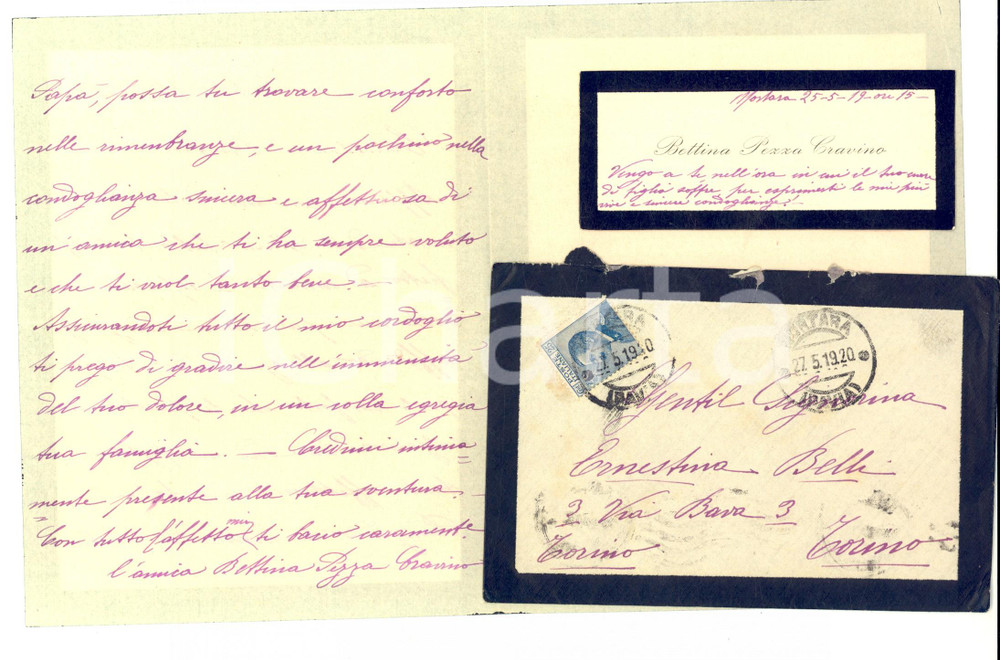 Papà, possa tu trovare conforto
nelle rimembranze, e un pochino nella
condoglianza sincera e affettuosa di
un' amica che ti ha sempre voluto
e che ti vuol tanto bene. -
Assicurandoti tutto il mio cordoglio
ti prego di gradire nell' immensità
del tuo dolore, in un colla egregia
tua famiglia. - Credimi intima=
mente presente alla tua sventura. -
=Con tutto l'affetto mio ti bacio caramente.
l'amica Bettina Pezza Cravino
Mortara 25-5-19- ore 15-
Bettina Pezza Cravino
Vengo a te nell'ora in cui il tuo cuore
di figlia soffre, per esprimerti le mie più
vive e sincere condoglianze!-
MORTARA
27.5.19.20
(PAVIA)
MORTARA
27.5.19.20
(PAVIA)
Gentil Signorina
Ernestina Belli
3 Via Bava 3
Torino Torino
charta